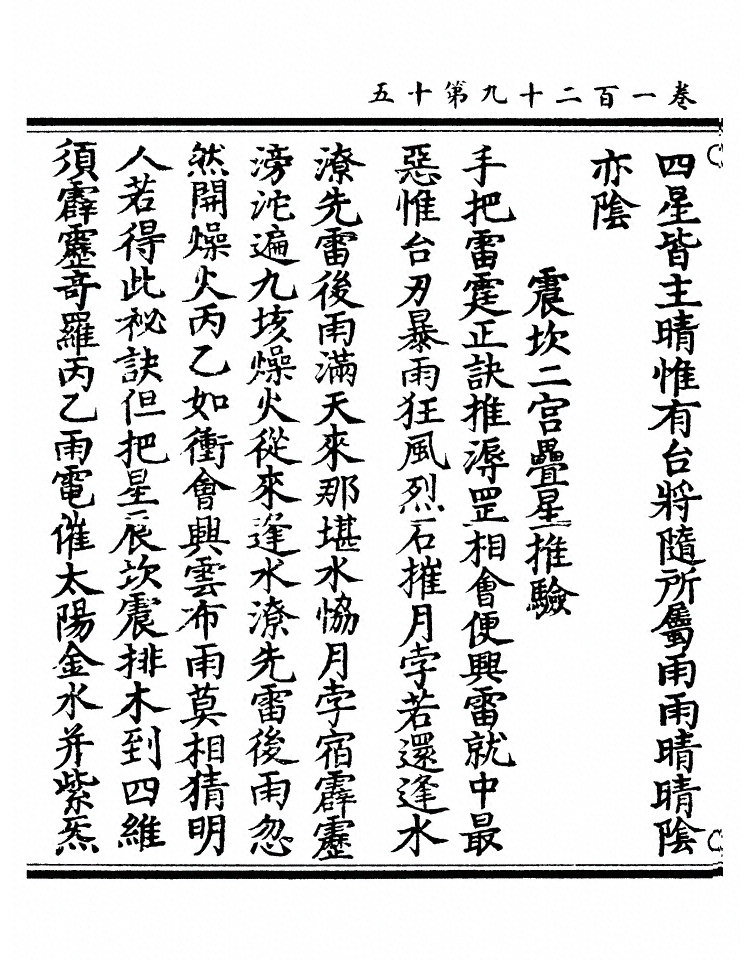 卷一百二十九第十五
四星皆主晴惟有台將隨所屬雨雨晴晴陰
亦陰
震坎二宮疊星推驗
手把雷霆正訣推溽罡相會便興雷就中最
惡惟台刃暴雨狂風烈石摧月孛若還逢水
潦先雷後雨滿天來那堪水恊月孛宿霹靂
滂沱遍九垓燥火從來逢水潦先雷後雨忽
然開燥火丙乙如衝會興雲布雨莫相猜明
人若得此祕訣但把星辰坎震排木到四維
須霹靂奇羅丙乙雨電催太陽金水并紫炁